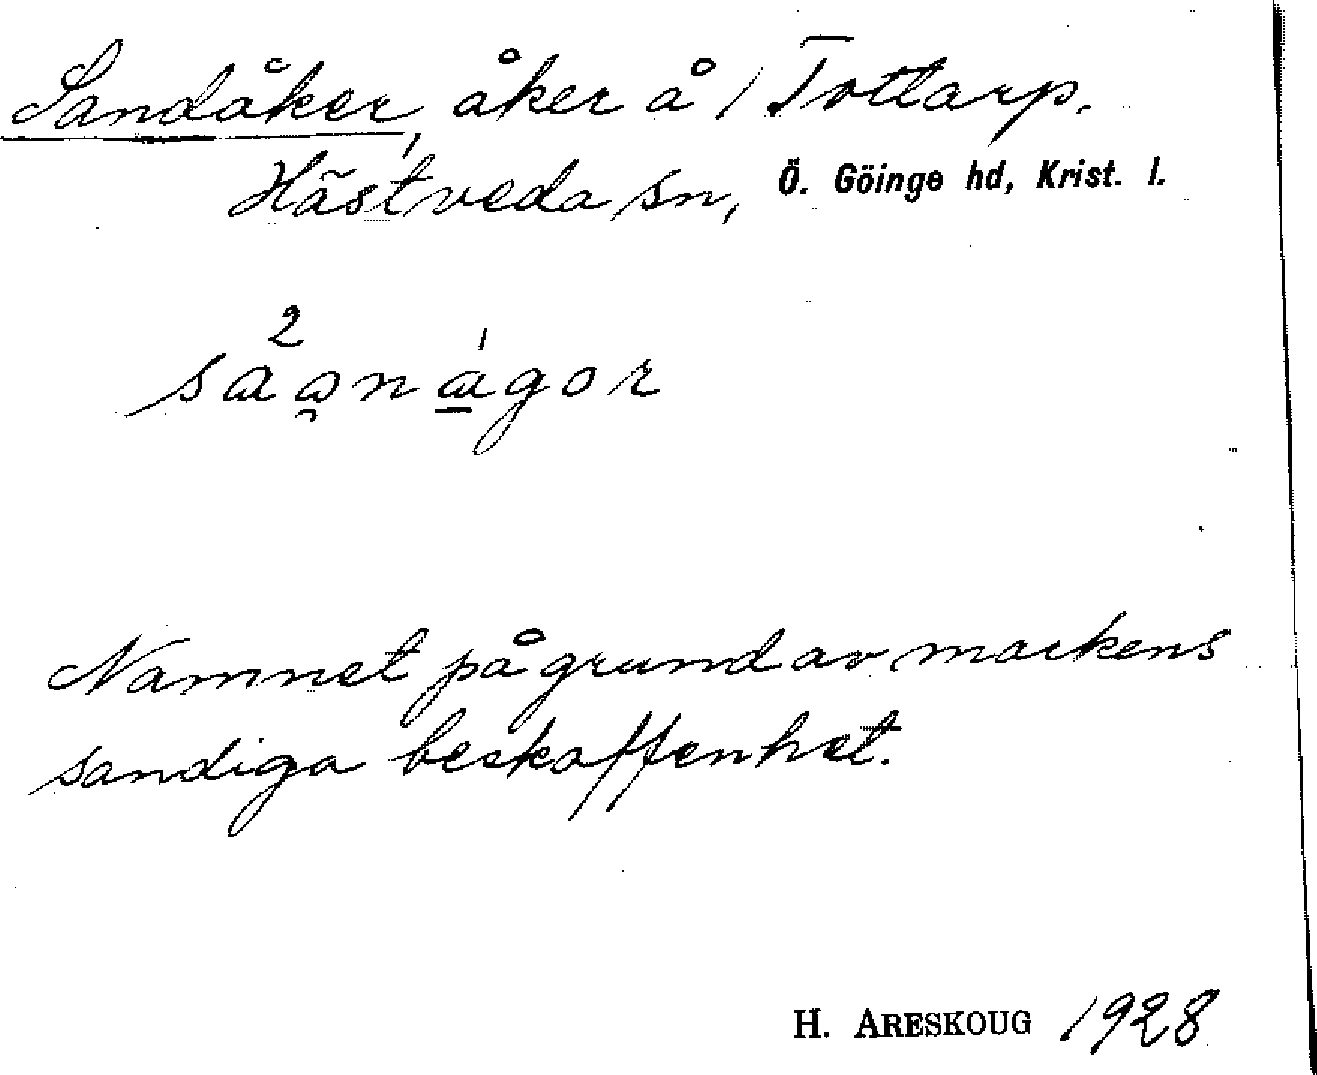 Sandåker, åker å 1 Tottarp.
Hästveda sn, Ö. Göinge hd, Krist. l.
Namnet på grund av markens
sandiga beskaffenhet.
H. ARESKOUG 1928